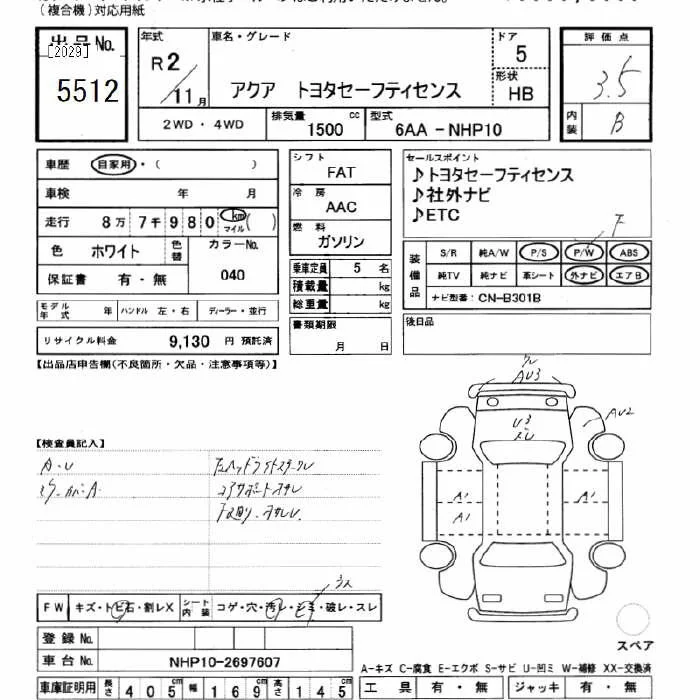 (複合機)対応用紙
出品No.
[2029]
5512
年式
R2/11月
車名・グレード
アクア トヨタセーフティセンス
ドア
5
形状
HB
評価点
3.5
内装
B
2WD・4WD
排気量
1500 cc
型式
6AA-NHP10
車歴 自家用・( )
車検 年 月
走行 8万7千980 km マイル ( )
色 ホワイト 色替
カラーNo.
040
保証書 有・無
シフト
FAT
冷房
AAC
燃料
ガソリン
乗車定員 5名
積載量 kg
総重量 kg
書類期限
月 日
セールスポイント
♪トヨタセーフティセンス
♪社外ナビ
♪ETC
F
装備品
S/R 純A/W P/S P/W ABS
純TV 純ナビ 革シート 外ナビ エアB
ナビ型番: CN-B301B
後日品
モデル年式 年 ハンドル 左・右 ディーラー・並行
リサイクル料金 9,130 円 預託済
【出品店申告欄(不良箇所・欠品・注意事項等)】
【検査員記入】
A・U
AU3
U3
AU2
A1
A1
A1
FW キズ・トビ石・割レX
シート内装 コゲ・穴・汚レ・シミ・破レ・スレ
登録No.
車台No. NHP10-2697607
車庫証明用 長さ 405cm 幅 169cm 高さ 145cm
スペア
A-キズ C-腐食 E-エクボ S-サビ U-凹ミ W-補修 XX-交換済
工具 有・無 ジャッキ 有・無